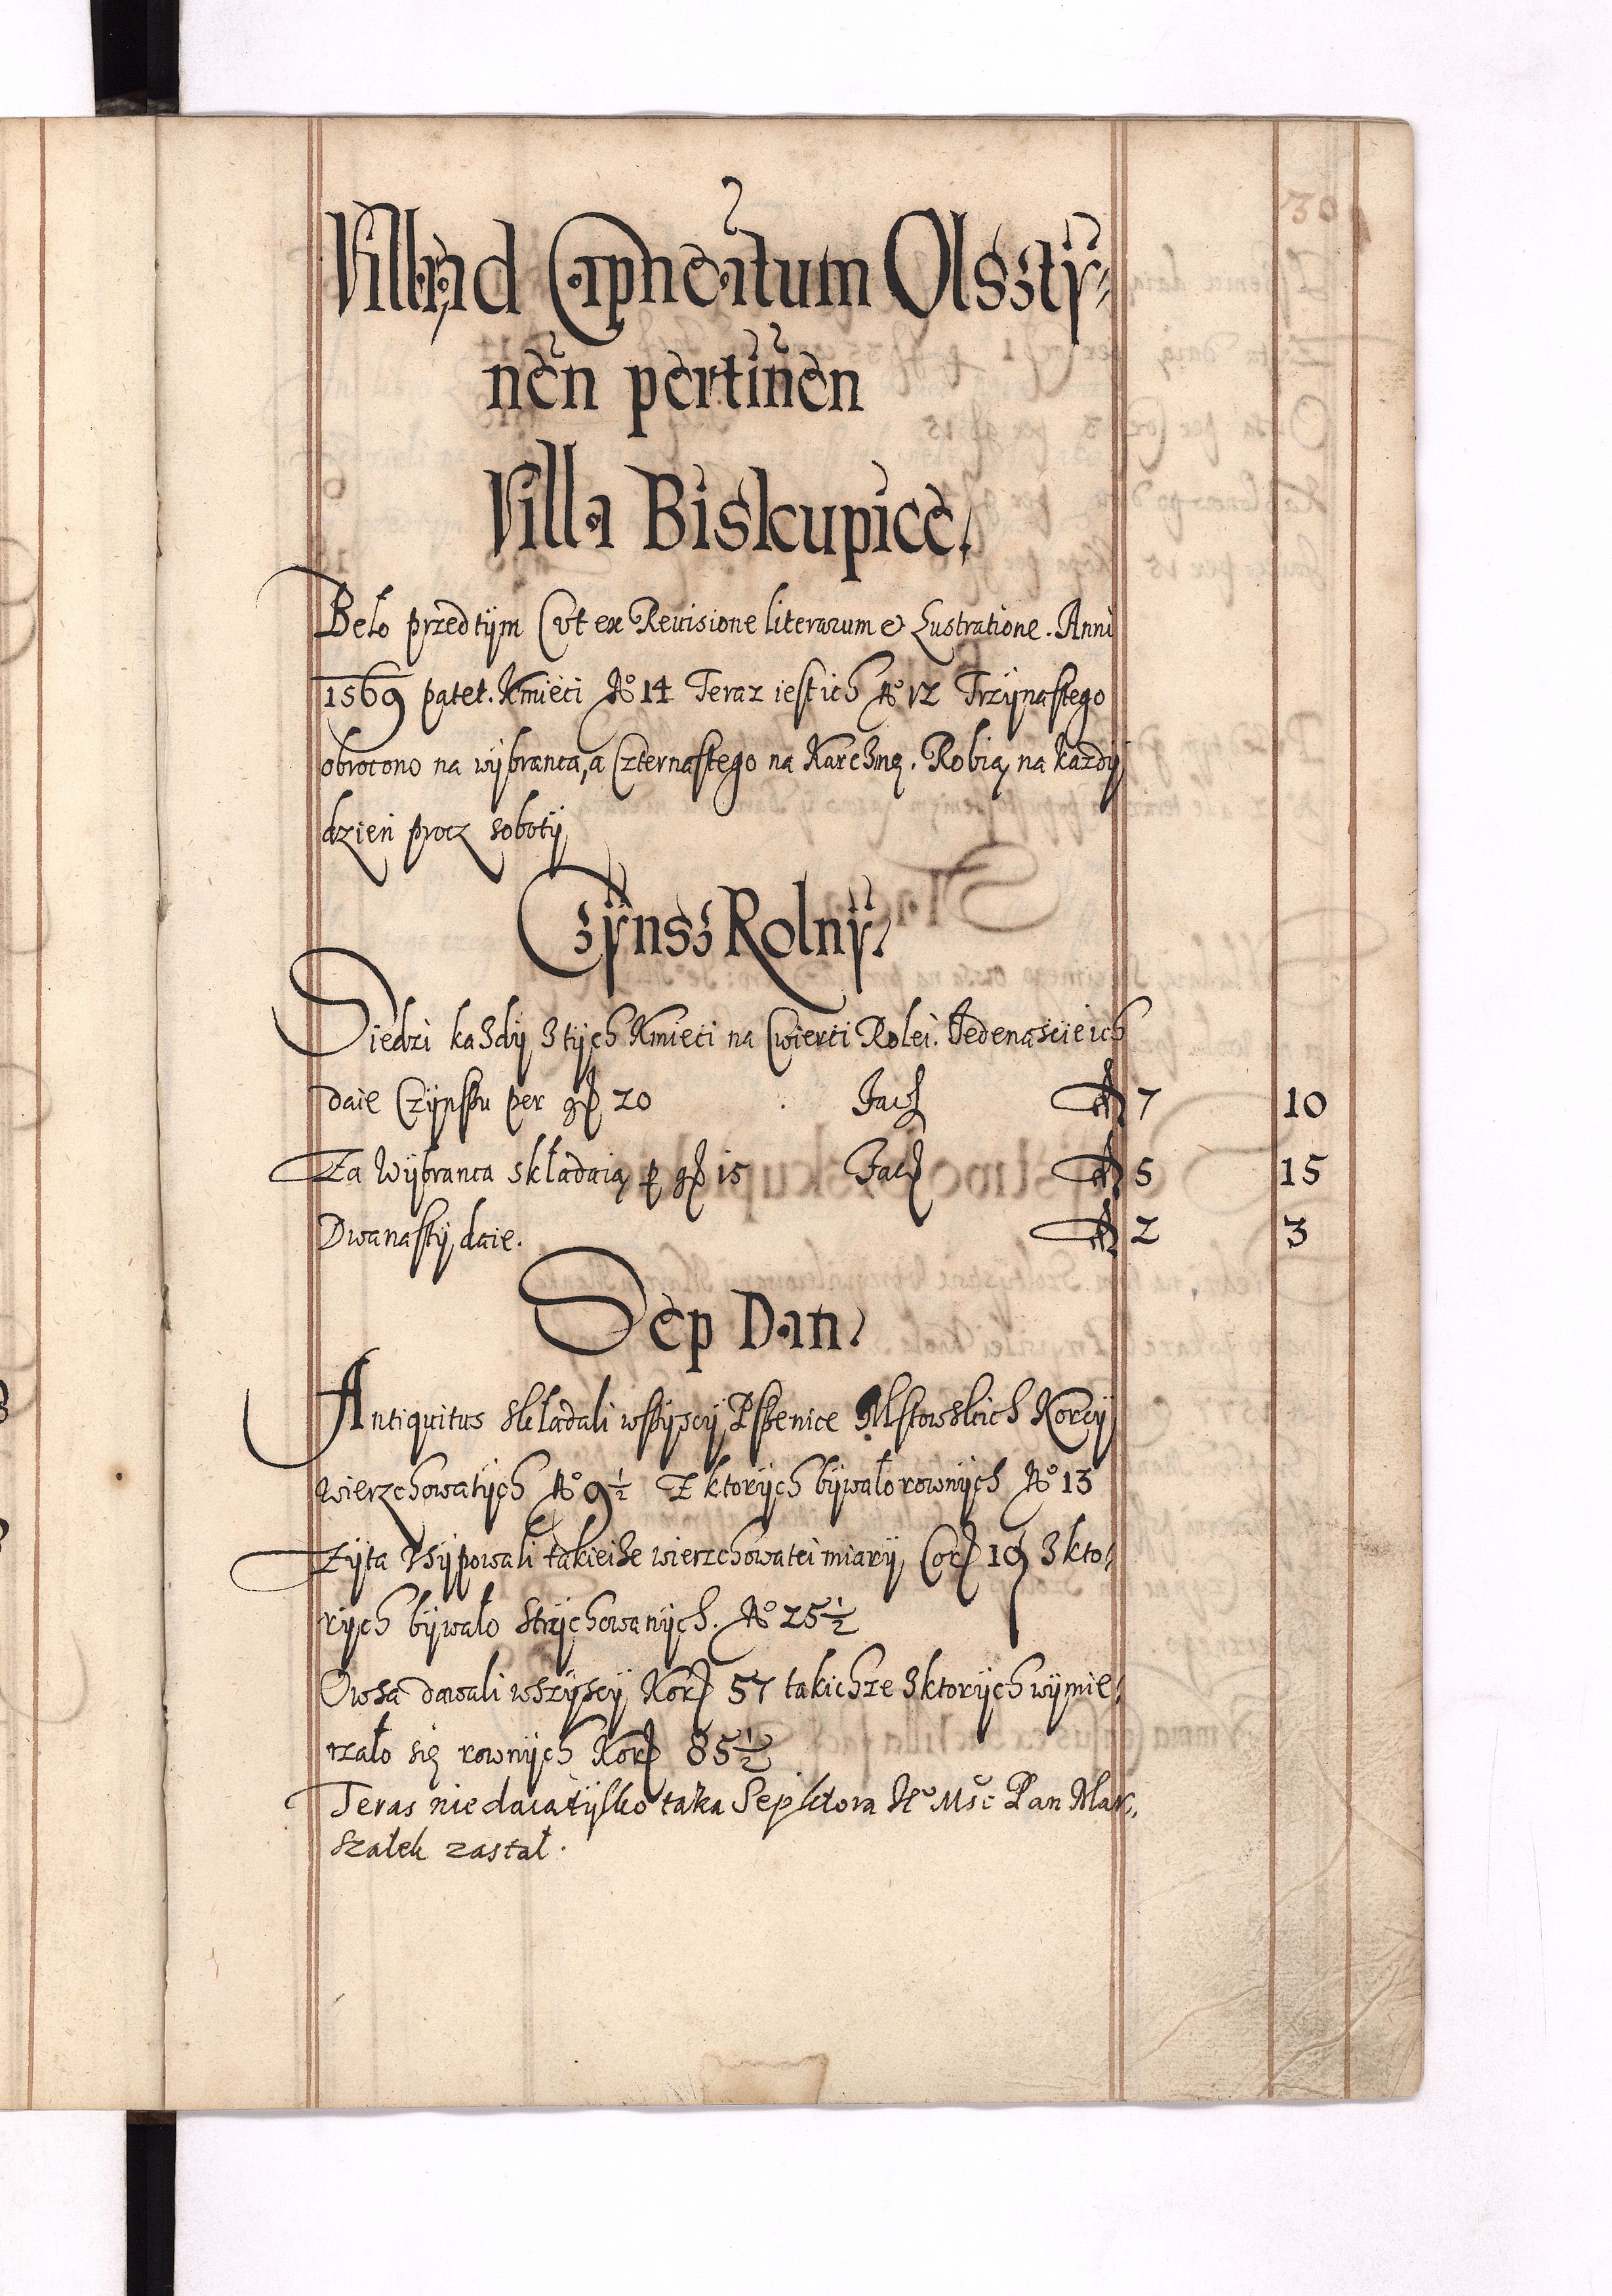 30
Villæ ad Capitneatum Olssztÿ-
nen̄ pertinen̄
Villa Biskupice.
Beło przedtÿm (vt ex Reuisione literarum et Lustratione. Anni
1569 patet. Kmieci No 14 Teraz iest ich No 12 Trzÿnastego
obrocono na wÿbranca, a Czternastego na Karczmę. Robią na każdÿ
dzień procz sobotÿ
Czÿnsz Rolnÿ.
Siedzi każdÿ z tÿch Kmieci na Cwierci Rolei. Jedenascie ich
daie Czÿnszu per gr 20 . Facit fl 7 10
Za Wÿbranca składaią p gr 15 Facit fl 5 15
Dwanastÿ daie. fl 2 3
Sep Dan.
Antiquitus składali wszÿscÿ Pszenice Mstowskich Korcÿ
wierzchowatÿch No 9½ Z ktorÿch bÿwało rownÿch No 13
Zÿta Wsÿpowali takieiże wierzchowatei miarÿ Cor 19 z kto-
rÿch bÿwało strÿchowanÿch. No 25½
Owsa dawali wszÿscÿ Kor 57 takichze z ktorÿch wÿmie-
rzało się rownÿch Kor 85½
Teras nie daia tÿlko taka Sep ktora Je° Msc Pan Mar-
szałek zastał.